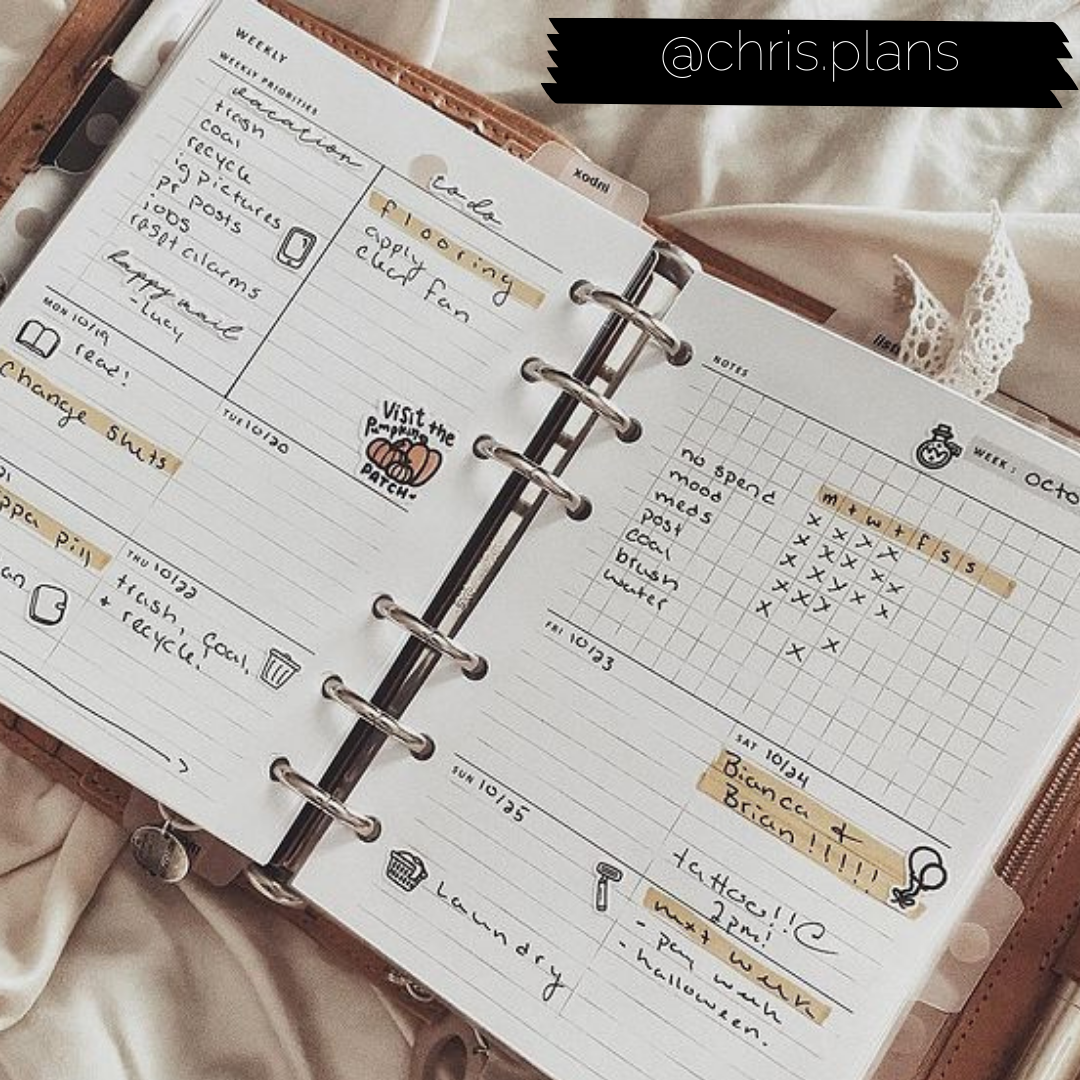 @chris.plans
WEEKLY
WEEKLY PRIORITIES
vacation
trash
coal
recycle
ig pictures
pr posts
jobs
reset alarms
happy mail
-Lucy
todo
flooring
apply
clean fan
inbox
MON 10/19
read!
change shuts
TUE 10/20
Visit the
Pumpkin
PATCH
THU 10/22
trash, coal,
+ recycle.
NOTES
WEEK: octo
m t w t f s s
no spend x x x x
mood x x x x
meds x x x x
post x x x
coal x
brush x
water x
FRI 10/23
SAT 10/24
Bianca +
Brian!!!!!
tattoo!!
2pm!
SUN 10/25
Laundry
next week
- pay week
- halloween.